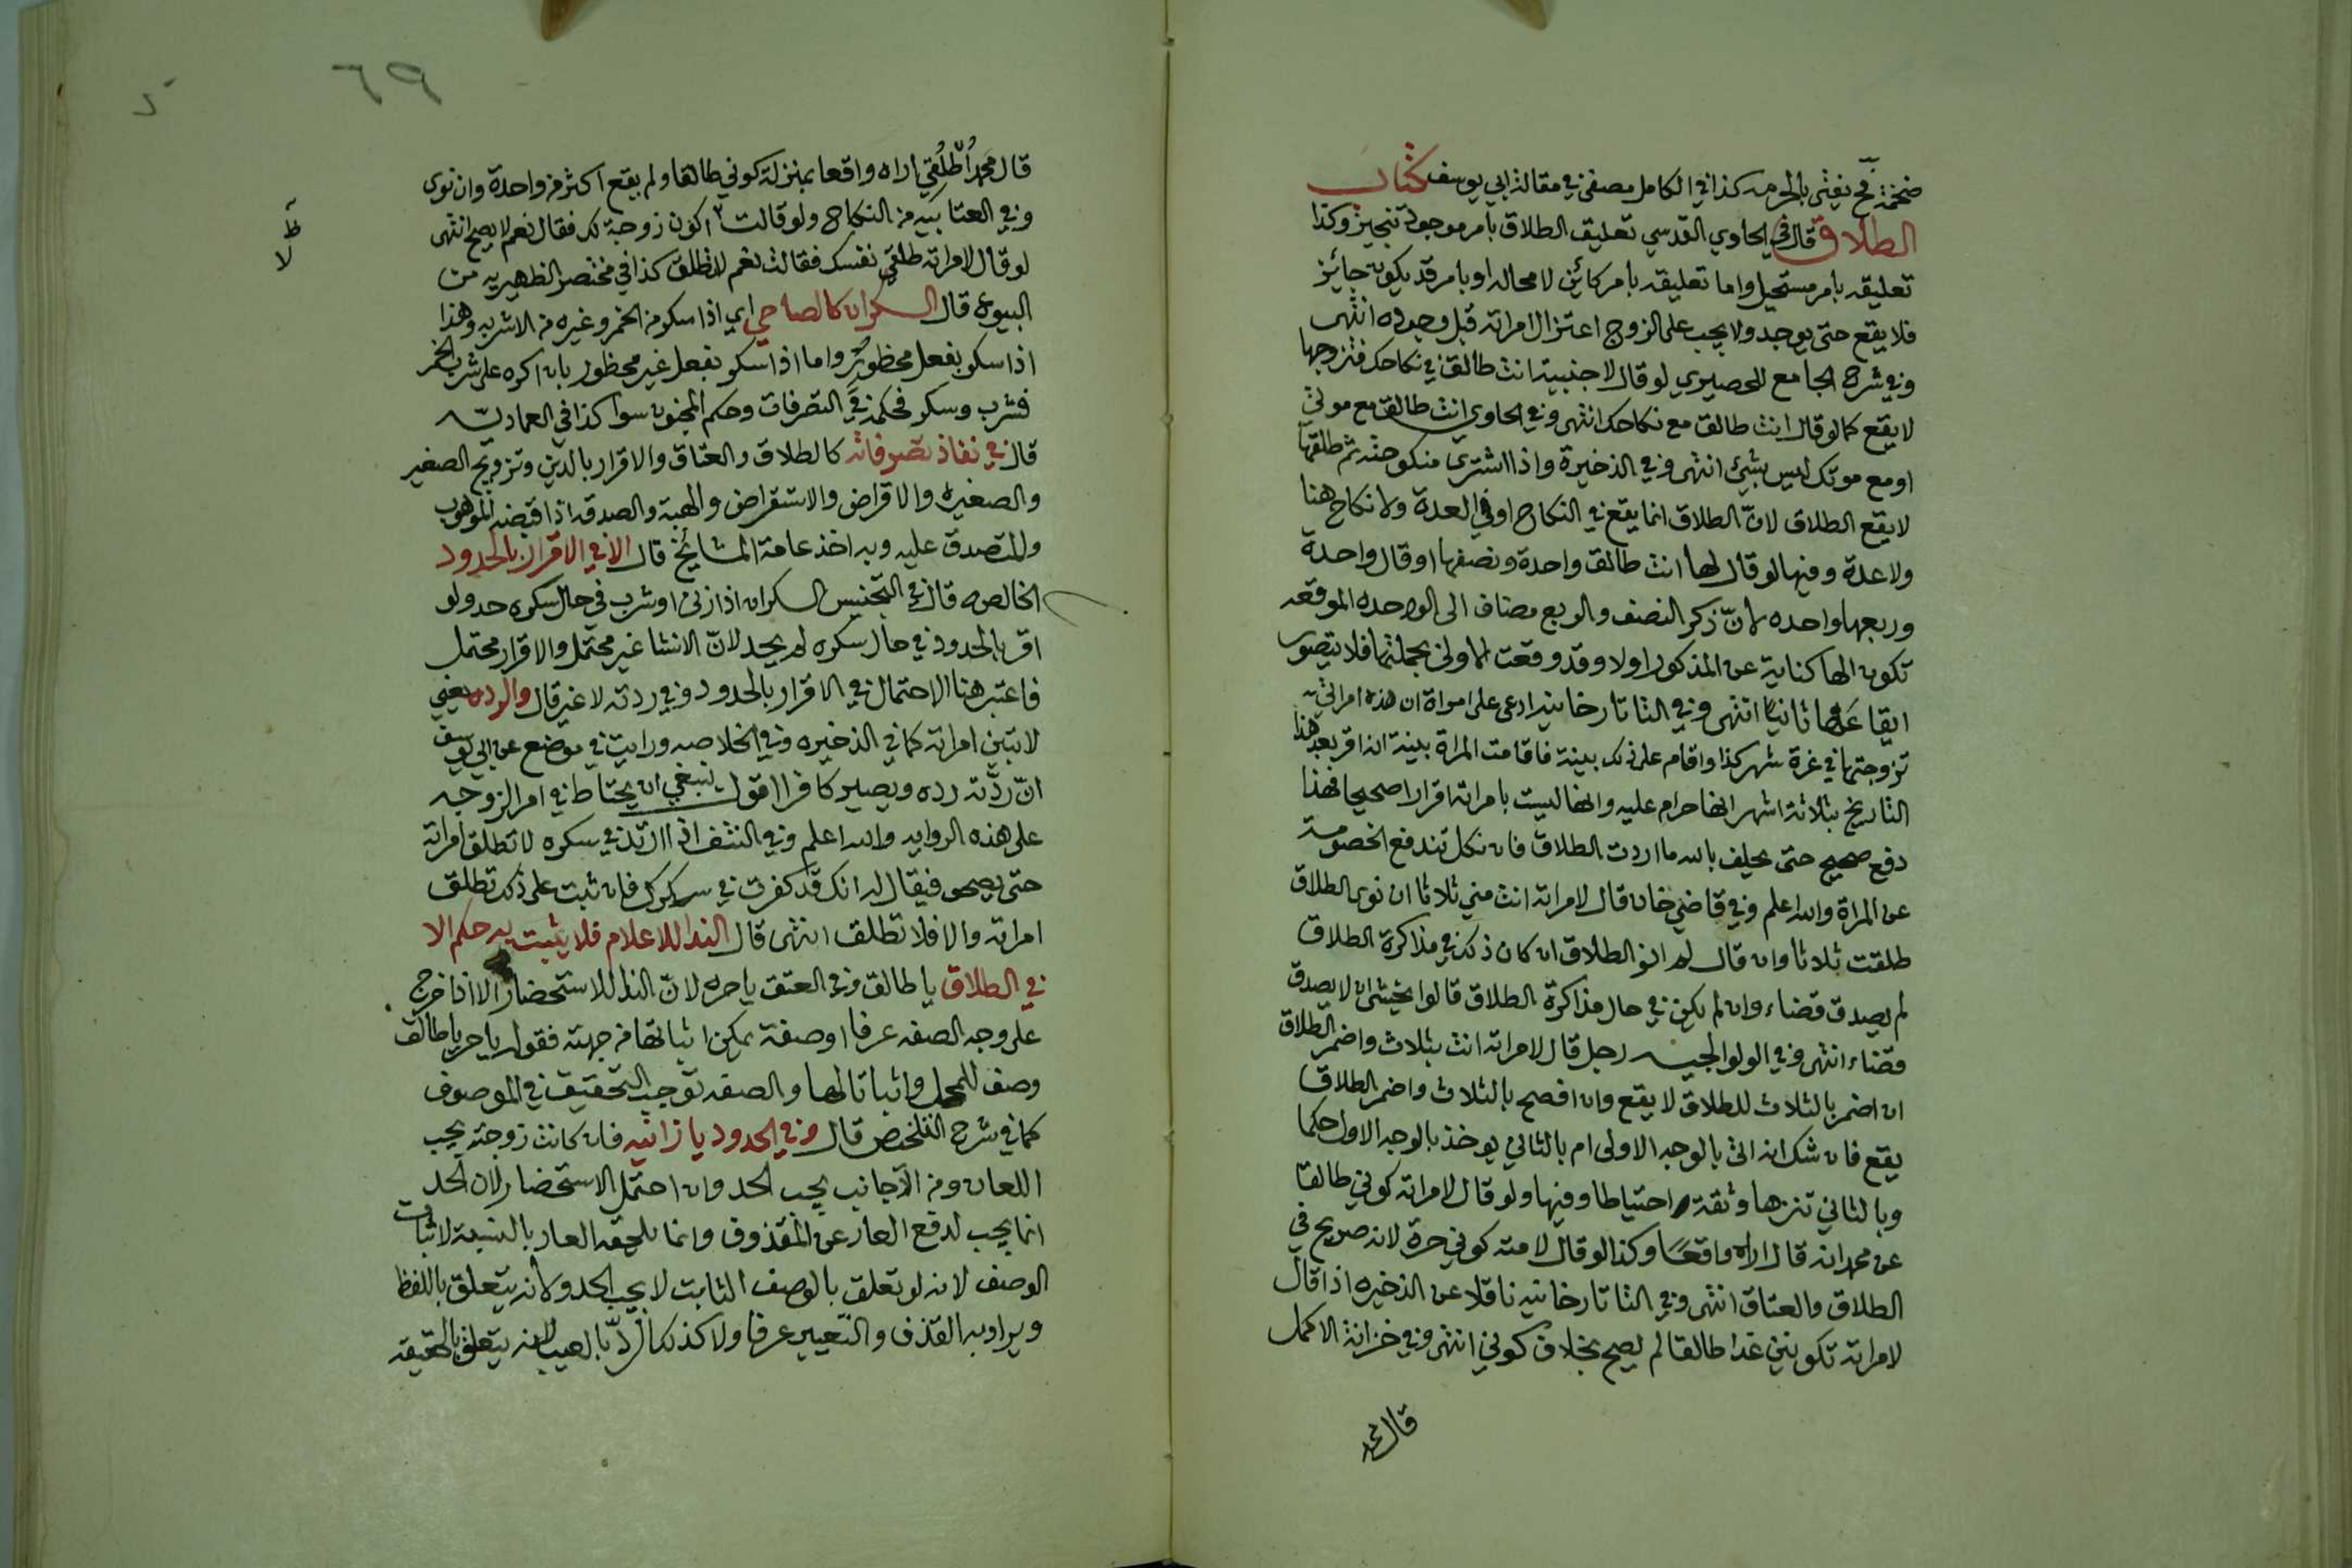 ضخمة فح يفتى بالحرمه كذا في الكامل مصفى في مقالة ابي يوسف كتاب
الطلاق قال في الحاوي القدسي تعليق الطلاق بامر موجود تنجيز وكذا
تعليقه بامر مستحيل واما تعليقه بامر كائن لا محاله او بامر قد يكون جائز
فلا يقع حتى يوجد ولا يجب على الزوج اعتزال امراته قبل وجوده انتهى
وفي شرح الجامع للحصيري لو قال لاجنبية انت طالق في نكاحك فتزوجها
لا يقع كما لو قال انت طالق مع نكاحك انتهى وفي الحاوي انت طالق مع موتي
او مع موتك ليس بشئ انتهى وفي الذخيرة واذا اشترى منكوحته ثم طلقها
لا يقع الطلاق لانّ الطلاق انما يقع في النكاح او في العدة ولا نكاح هنا
ولا عدة وفيها لو قال لها انت طالق واحدة ونصفها او قال واحدة
وربعها واحده لانّ ذكر النصف والربع مضاف الى الواحده الموقعه
تكون الها كناية عن المذكور اولا وقد وقعت الاولى بجملتها فلا يتصور
ايقاعها ثانيًا انتهى وفي التاتارخانيه ادعى على امراة ان هذه امراتي
تزوجتها في غرة شهر كذا واقام على ذلك بينة فاقامت المراة بينة انه اقر بعد هذا
التاريخ بثلاثة اشهر انها حرام عليه وانها ليست بامراته اقرارا صحيحا فهذا
دفع صحيح حتى يحلف بالله ما اردت الطلاق فان نكل تندفع الخصومة
عن المراة والله اعلم وفي قاضي خان قال لامراته انت مني ثلاثا ان نوى الطلاق
طلقت ثلاثا وان قال لم انو الطلاق ان كان ذلك في مذاكرة الطلاق
لم يصدق قضاء وان لم يكن في حال مذاكرة الطلاق قالوا يخشى ان لا يصدق
قضاء انتهى وفي الولوالجيه رجل قال لامراته انت بثلاث واضمر الطلاق
ان اضمر بالثلاث للطلاق لا يقع وان افصح بالثلاث واضمر الطلاق
يقع فان شك انه اتى بالوجه الاولى ام بالثاني يوخذ بالوجه الاول حكما
وبالثاني تنزها وثقة احتياطا وفيها ولو قال لامراته كوني طالقا
عن محمد انه قال اراه واقعًا وكذا لو قال لامته كوني حرة لانه صريح في
الطلاق والعتاق انتهى وفي التاتارخانيه ناقلا عن الذخيره اذا قال
لامراته تكونين غدا طالقا لم يصح بخلاف كوني انتهى وفي خزانة الاكمل
قال محمد
٦٩
قال محمد اُطلُقي اراه واقعا بمنزلة كوني طالقا ولم يقع اكثر من واحدة وان نوى
وفي العتابيه من النكاح ولو قالت اكون زوجة لك فقال نعم لا يصح انتهى
لو قال لامراته طلقي نفسك فقالت نعم لا تطلق كذا في مختصر الظهيريه من
البيوع قال السكران كالصاحي اي اذا سكر من الخمر وغيره من الاشربه وهذا
اذا سكر بفعل محظور واما اذا سكر بفعل غير محظور بان اكره على شرب الخمر
فشرب وسكر فحكمه في التصرفات وحكم المجنون سوا كذا في العماديّه
قال في نفاذ تصرفاته كالطلاق والعتاق والاقرار بالدين وتزويج الصغير
والصغيره والاقراض والاستقراض والهبة والصدقه اذا قبضه الموهوب
والمتصدق عليه وبه اخذ عامة المشائخ قال الا في الاقرار بالحدود
الخالصه قال في التجنيس السكران اذا زنى او شرب في حال سكره حد ولو
اقر بالحدود في حال سكره لم يحد لانّ الانشا غير محتمل والاقرار محتمل
فاعتبر هنا الاحتمال في الاقرار بالحدود وفي ردته لا غير قال والرده يعني
لا تبين امراته كما في الذخيره وفي الخلاصه ورايت في موضع عن ابي يوسف
انّ ردّته رده ويصير كافرا اقول ينبغي ان يحتاط في امر الزوجيه
على هذه الروايه والله اعلم وفي النتف اذا ارتد في سكره لا تطلق امراته
حتى يصحو فيقال له انك قد كفرت في سكرك فان ثبت على ذلك تطلق
امراته والا فلا تطلق انتهى قال الندا للاعلام فلا يثبت به حكم الا
في الطلاق يا طالق وفي العتق يا حره لانّ الندا للاستحضار الا اذا خرج
على وجه الصفه عرفا او صفة يمكن اثباتها من جهته فقوله يا حر يا طالق
وصف للمحل واثباتا لها والصفه توجب التحقيق في الموصوف
كما في شرح التلخيص قال وفي الحدود يا زانيه فان كانت زوجته يجب
اللعان ومن الاجانب يجب الحد وان احتمل الاستحضار لان الحد
انما يجب لدفع العار عن المقذوف وانما يلحقه العار بالنسبة لاثبات
الوصف لانه لو تعلق بالوصف الثابت لا يجب الحد ولانه يتعلق باللفظ
ويراد به القذف والتعيير عرفا ولا كذلك الردّ بالعيب لانه يتعلق بالحقيقه